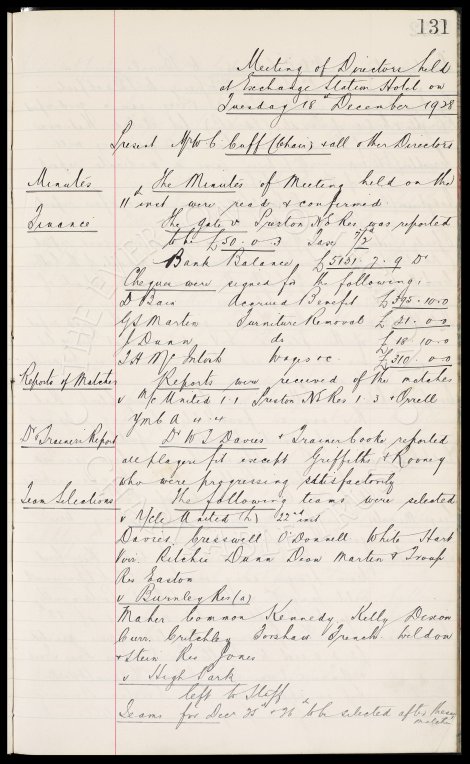 131
Meeting of Directors held
at Exchange Station Hotel on
Tuesday 18th December 1928
Present Mr W C Cuff (Chair) & all other Directors
Minutes The Minutes of Meeting held on the
11th inst were read & confirmed.
Finance The gate v Preston N E Res. was reported
to be £50.0.3 Tax 7/2d
Bank Balance £5131.7.9 Dr
Cheques were signed for the following:
D Bain Accrued Benefit £395.10.0
G S Martin Furniture Removal £21.0.0
J Dunn do £18.10.0
T H McIntosh Wages &c. £310.0.0
Reports of Matches Reports were received of the matches
v M/c United 1.1 Preston N E Res 1.3 & Orrell
YMCA 4.4
Dr & Trainers Report Dr W T Davies & Trainer Cooke reported
all players fit except Griffiths & Rooney
who were progressing satisfactorily
Team Selections The following teams were selected
v N/cle United (h) 22nd inst
Davies Cresswell O'Donnell White Hart
Virr. Ritchie Dunn Dean Martin & Troup
Res Easton
v Burnley Res (a)
Maher Common Kennedy Kelly Dixon
Curr. Critchley Forshaw French Weldon
& Stein Res Jones
v High Park
left to Staff
Teams for Decr 25th & 26th to be selected after these
matches